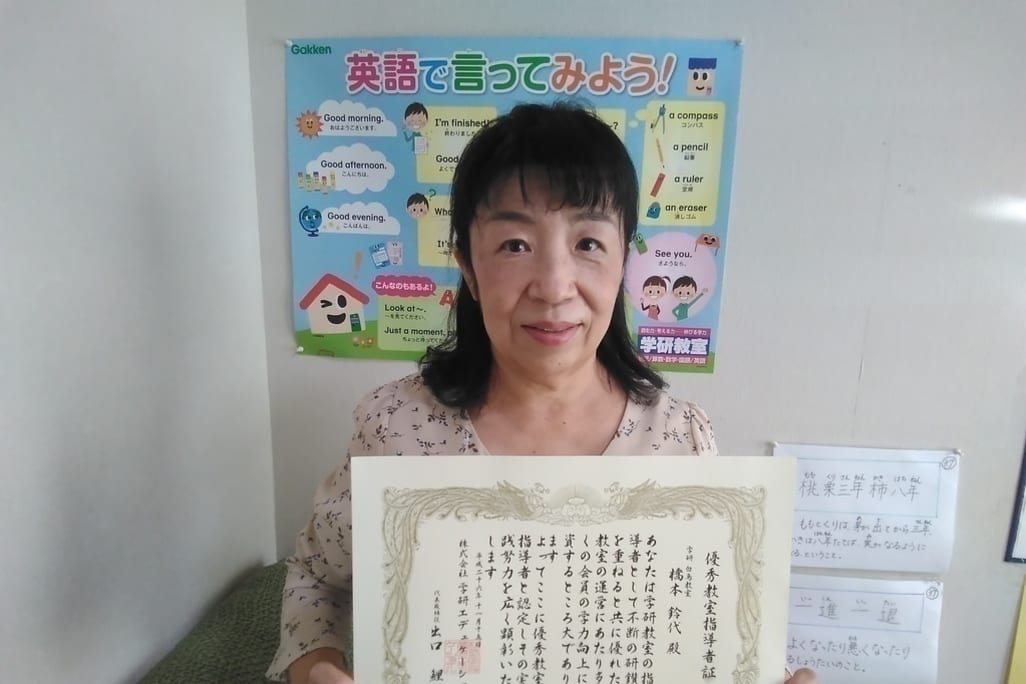 Gakken
英語で言ってみよう!
Good morning.
おはようございます。
Good afternoon.
こんにちは。
Good evening.
こんばんは。
I'm finished!
終わりました
Good
よくで
?
Wha
It's
a compass
コンパス
a pencil
鉛筆
a ruler
定規
an eraser
消しゴム
See you.
さようなら。
こんなのもあるよ!
Look at〜.
〜を見てください。
Just a moment, pl
ちょっと待ってくだ
A
学研教室
算数・数学・国語/英語
優秀教室指導者証
学研 白鳥教室
橋本 鈴代 殿
あなたは学研教室の指
導者として不断の研鑚
を重ねると共に優れた
教室の運営にあたり多
くの会員の学力向上に
資するところ大であり
ます
よってここに優秀教室
指導者と認定しその実
践努力を広く顕彰いた
します
平成二十六年十一月十五日
株式会社 学研エデュケーショ
代表取締役 出口 鯉
桃栗三年柿八年
もも くり さん ねん かき はち ねん
ももとくりは、芽が出てから三年、
きは八年たてば、実がなるように
る、ということ。
一進一退
いっ しん いっ たい
よくなったり悪くなったり
るじょうたいのこと。